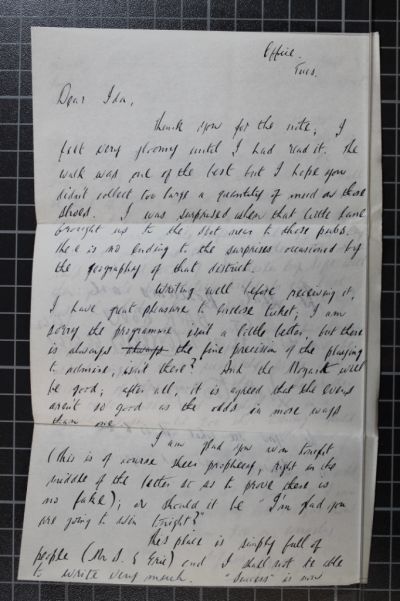 Office.
Tues.
Dear Ida,
Thank you for the note; I
felt very gloomy until I had read it. The
walk was one of the best but I hope you
didn't collect too large a quantity of mud on those
shoes. I was surprised when that little lane
brought us to the spot near to those pubs.
there is no ending to the surprises occasioned by
the geography of that district.
Writing well before receiving it,
I have great pleasure to enclose ticket; I am
sorry the programme isn't a little better, but there
is always always the fine precision of the playing
to admire, isn't there? And the Mozart will
be good; after all, it is agreed that the evens
aren't so good as the odds in more ways
than one.
I am glad you won tonight
(this is of course sheer prophecy, right in the
middle of the letter so as to prove there is
no fake); or should it be "I'm glad you
are going to win tonight?"
This place is simply full of
people (Mr S. & Eric) and I shall not be able
to write very much. "Success" is now